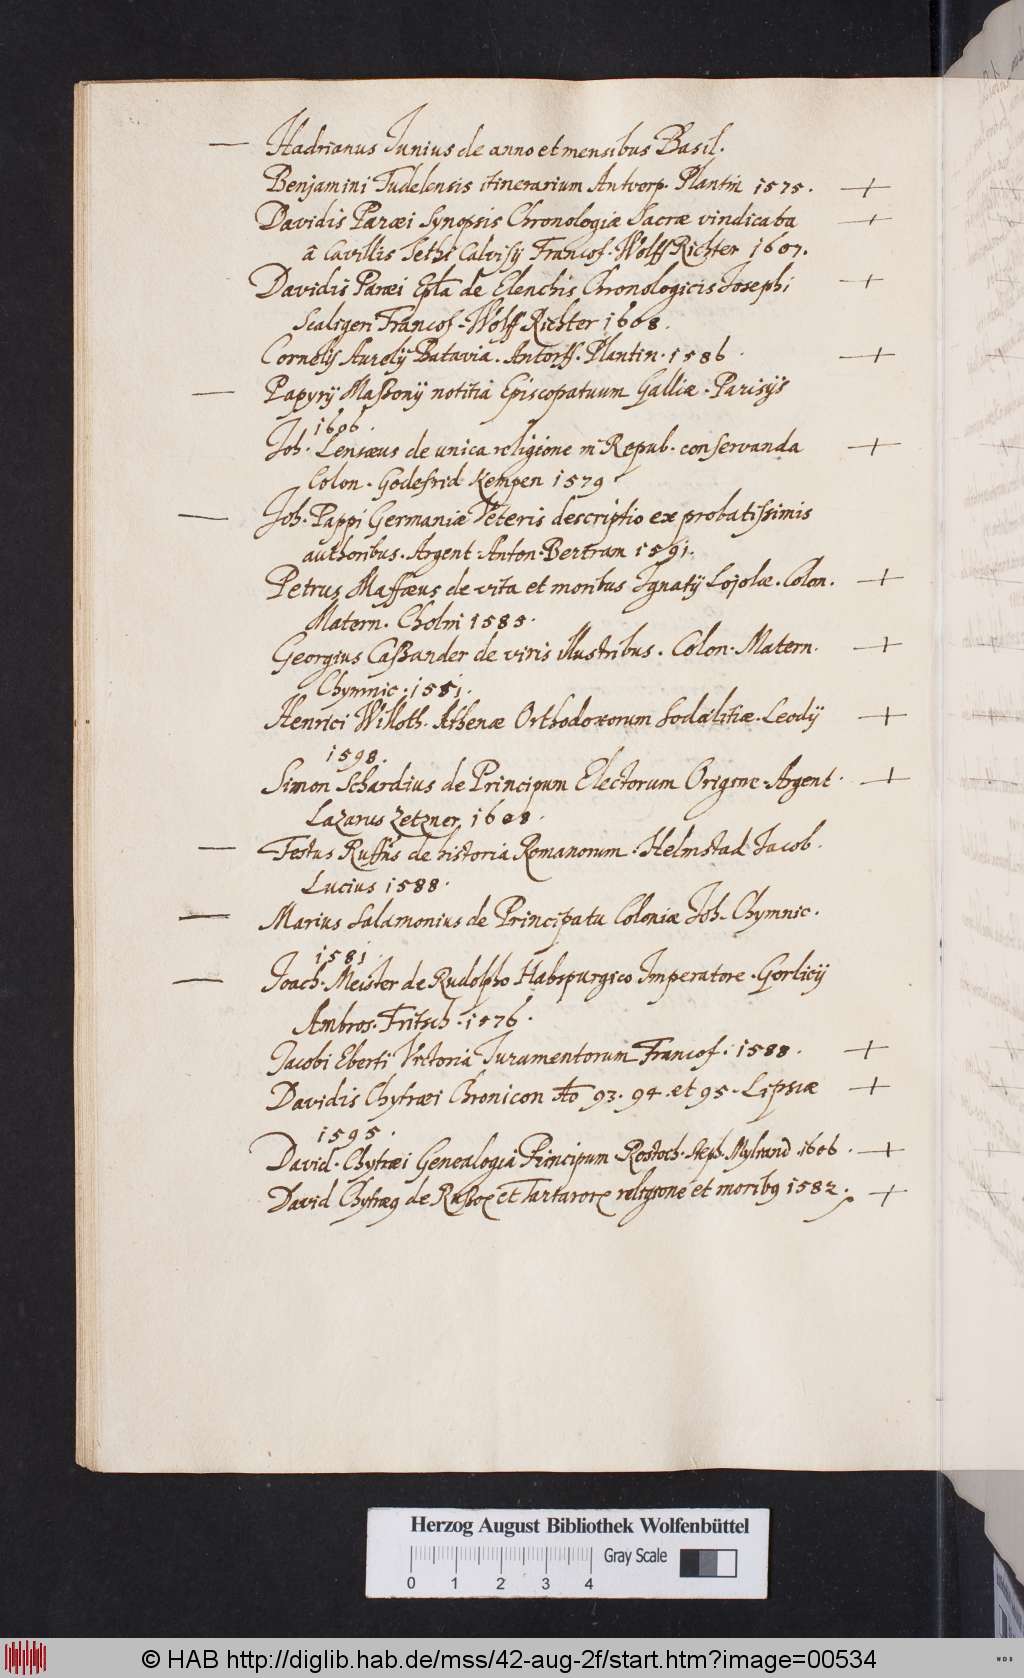 — Hadrianus Junius de anno et mensibus Basil.
Benjamini Tudelensis itinerarium Antvorp. Plantin 1575. +
Davidis Paræi Synopsis Chronologiæ Sacræ vindicata +
â Cavillis Sethi Calvisij Francof. Wolff Richter 1607.
Davidis Paræi Epla de Elenchis Chronologicis Josephi +
Scaligeri Francof. Wolff Richter 1608.
Cornelij Aurelij Batavia. Antorff. Plantin. 1586. +
— Papyrij Maßonij notitia Episcopatuum Galliæ. Parisijs
1606.
Joh. Lensæus de unica religione in Repub. conservanda +
Colon. Godefrid Kempen 1579
— Joh. Pappi Germaniæ Veteris descriptio ex probatissimis
authoribus. Argent. Anton. Bertram 1591.
Petrus Maffæus de vita et moribus Ignatij Lojolæ. Colon. +
Matern. Cholin 1585.
Georgius Caßander de viris illustribus. Colon. Matern. +
Chymnic. 1551.
Henrici Willoth. Athenæ Orthodoxorum Sodalitiæ. Leodij +
1598.
Simon Schardius de Principum Electorum Origine. Argent. +
Lazarus Zetzner. 1608.
— Festus Ruffus de historia Romanorum. Helmstad. Jacob.
Lucius 1588.
— Marius Salamonius de Principatu Coloniæ Joh. Chymnic.
1581
— Joach. Meister de Rudolpho Habspurgico Imperatore. Gorlicij
Ambros. Fritsch. 1576.
Jacobi Eberti Victoria Juramentorum Francof. 1588. +
Davidis Chytræi Chronicon Ao 93. 94. et 95. Lipsiæ +
1595.
David. Chytræi Genealogia Principum Rostoch. Steph. Mylrand 1606. +
David Chytræq de Rußoꝝ et Tartaroꝝ religione et moribq 1582. +
Herzog August Bibliothek Wolfenbüttel
Gray Scale
0 1 2 3 4
© HAB http://diglib.hab.de/mss/42-aug-2f/start.htm?image=00534